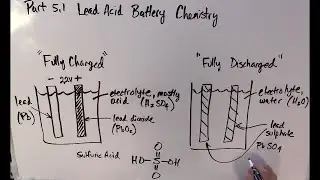 Part 5.1 Lead Acid Battery Chemistry
"Fully Charged"
- 2.2V +
electrolyte, mostly
acid (H₂SO₄)
lead
(Pb)
lead dioxide
(PbO₂)
Sulfuric Acid
O
HO-S-OH
O
"Fully Discharged"
electrolyte,
water (H₂O)
lead
sulphate
PbSO₄